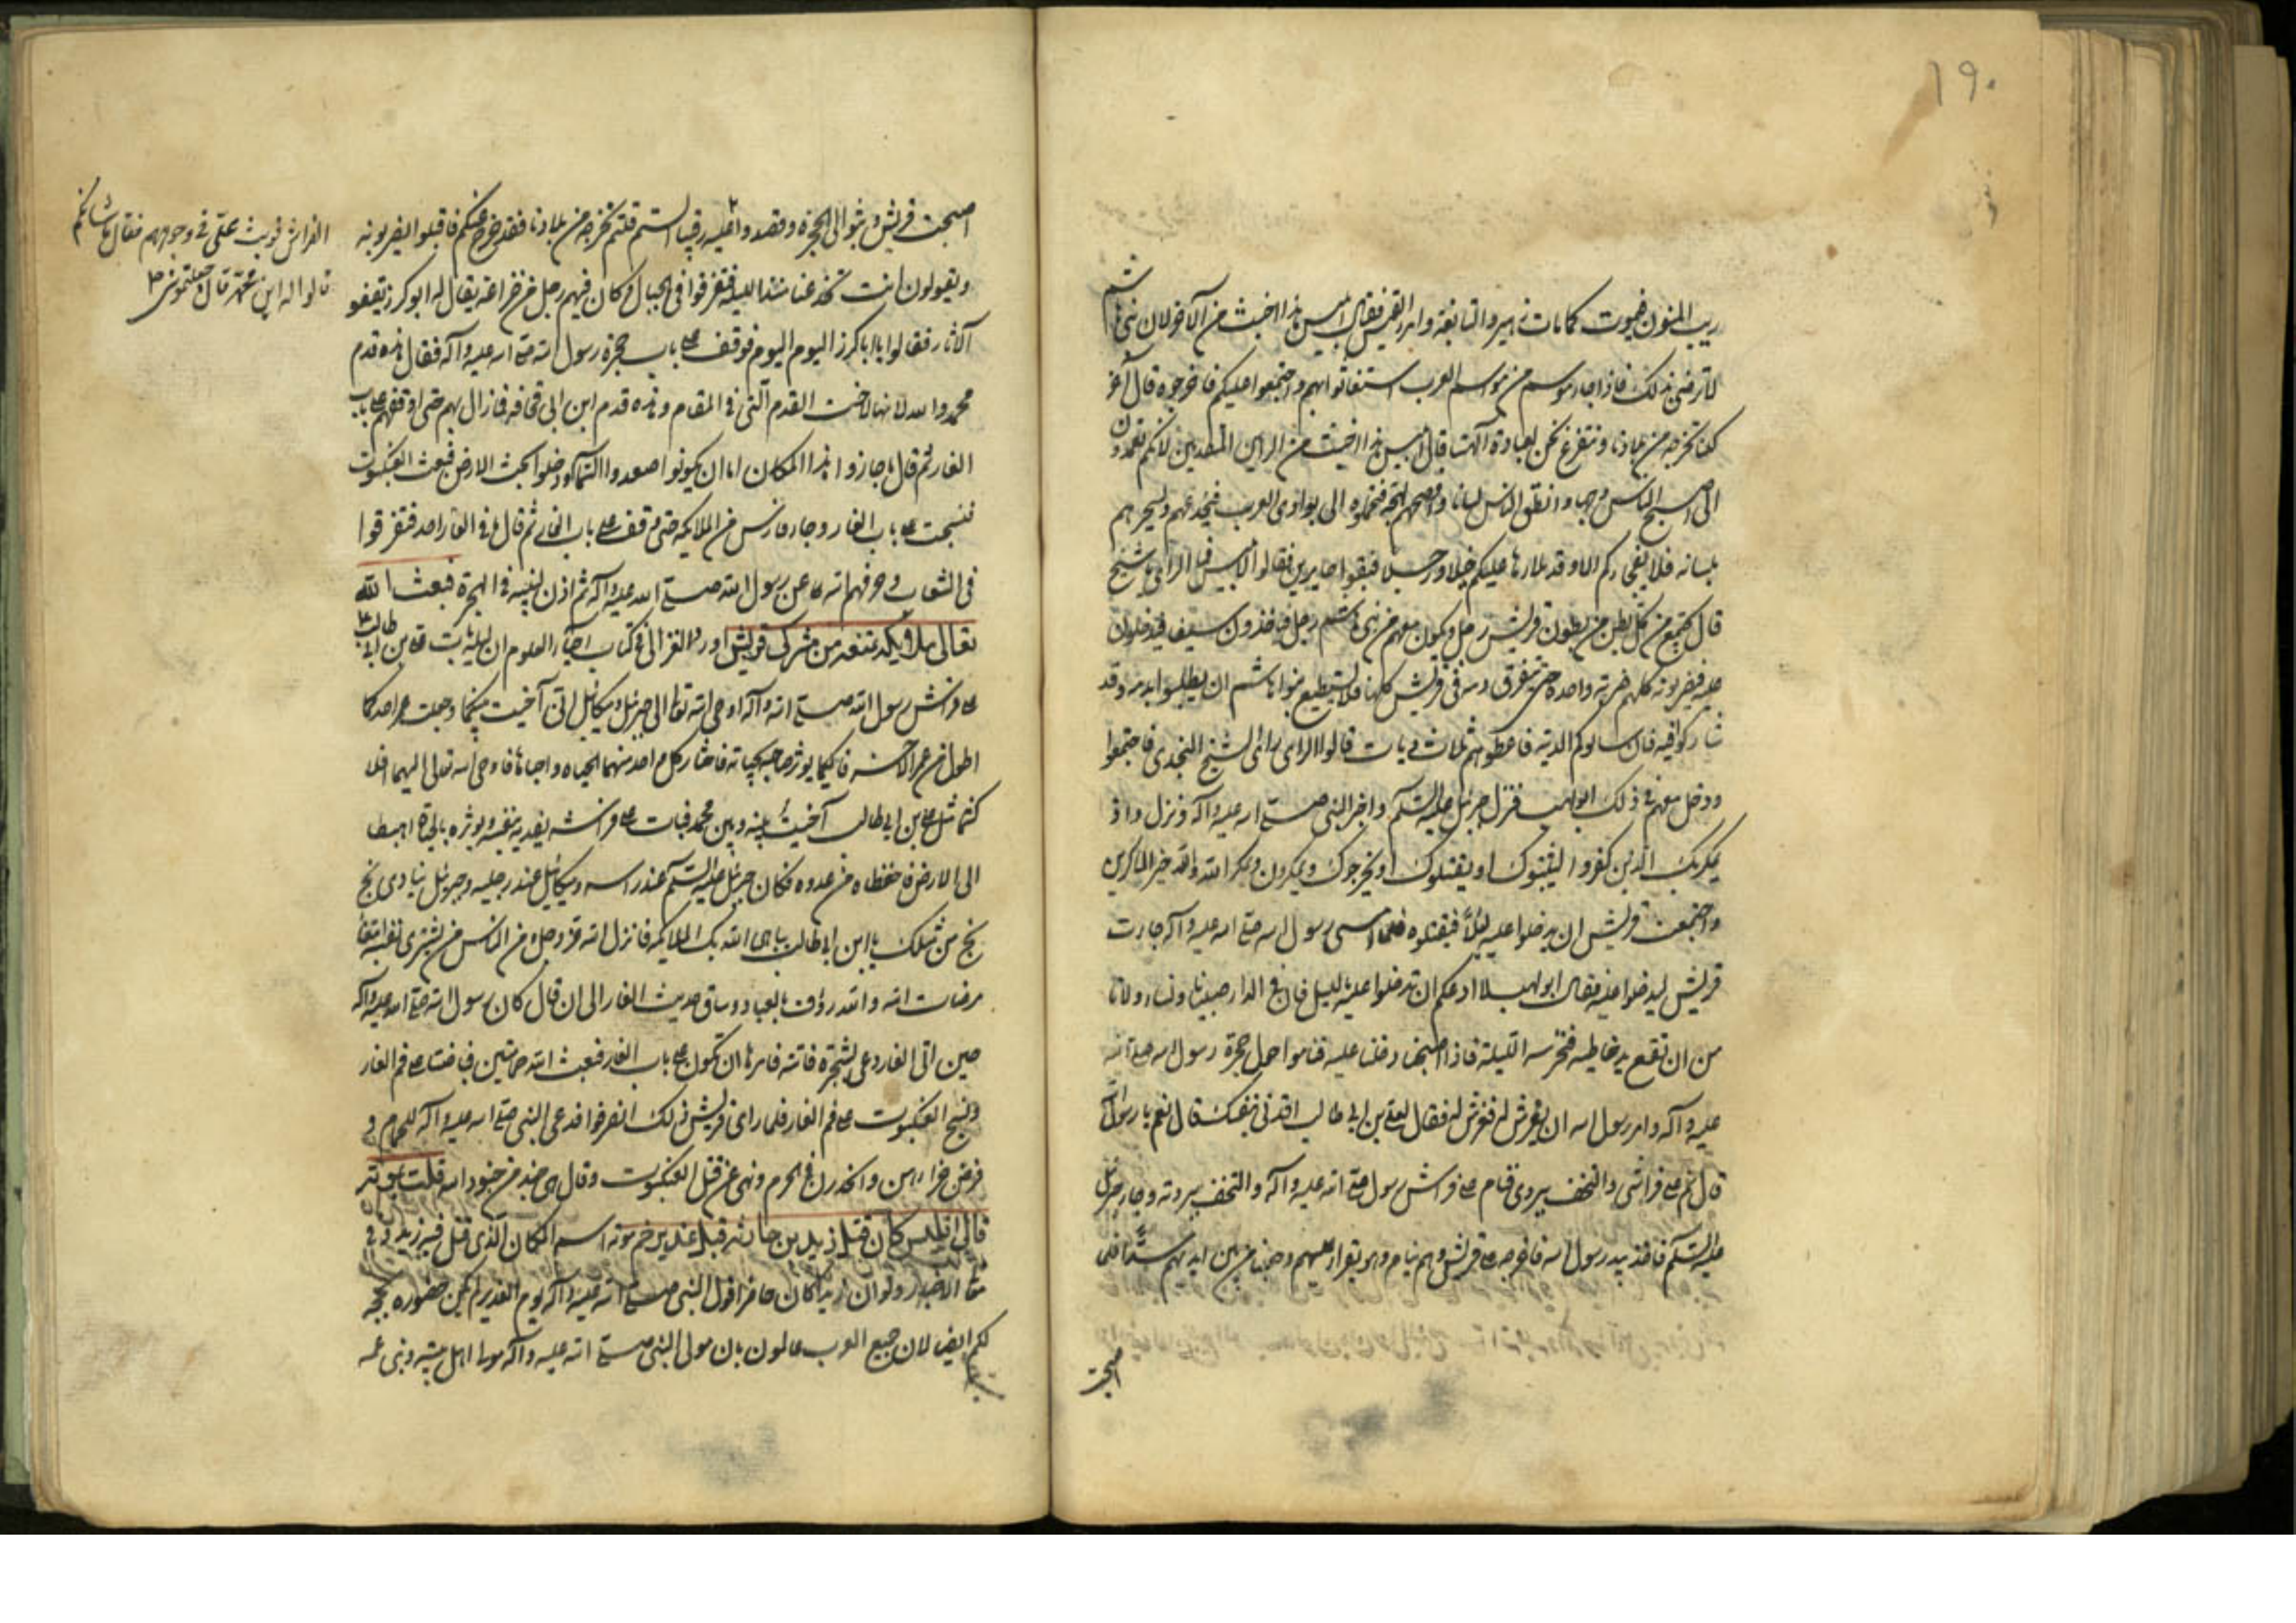 ١٩٠
ريب المنون فيموت كما مات زهير والنابغة وامرء القيس فقال ابليس هذا اخبث من الآخر لان بني هاشم
لا ترضى بذلك فاذا جاء موسم من مواسم العرب استغاثوا بهم واجتمعوا عليكم فاخرجوه قال آخر
كنا نخرجه من بلادنا ونتفرغ نحن لعبادة آلهتنا قال ابليس هذا اخبث من الرايين المتقدمين لانكم تعمدون
الى اصبح الناس وجها وانطق الناس لسانا وافصحهم لهجة فتحملوه الى بوادي العرب فيخدعهم ويسحرهم
بلسانه فلا يفجأكم الا وقد ملأها عليكم خيلا ورجلا فبقوا حايرين فقالوا لابليس فما الراى يا شيخ
قال يجتمع من كل بطن من بطون قريش رجل ويكون معهم من بني هاشم رجل فياخذون سيفا فيدخلون
عليه فيضربونه كلهم ضربة واحدة حتى يتفرق دمه في قريش كلها فلا يستطيع بنوا هاشم ان يطلبوا بدمه وقد
شاركوا فيه فان سالوكم الدية فاعطوهم ثلاث ديات قالوا الراى راى الشيخ النجدي فاجتمعوا
ودخل معهم في ذلك ابولهب فنزل جبرئيل عليه السلم واخبر النبي صلى الله عليه وآله ونزل واذ
يمكر بك الذين كفروا ليثبتوك او يقتلوك او يخرجوك ويمكرون ويمكر الله والله خير الماكرين
واجتمعت قريش ان يدخلوا عليه ليلا فيقتلوه فلما امسى رسول الله صلى الله عليه وآله جاءت
قريش ليدخلوا عليه فقال ابولهب لا ادعكم ان تدخلوا عليه بالليل فان في الدار صبيانا ونساء ولا نا
من ان تقع يد خاطئة فنحرسه الليلة فاذا اصبحنا دخلنا عليه فناموا حول حجرة رسول الله صلى الله
عليه وآله وامر رسول الله ان يفرش له ففرش له فقال لعلي بن ابي طالب افدني بنفسك قال نعم يا رسول الله
قال نم على فراشي والتحف ببردي فنام على فراش رسول الله صلى الله عليه وآله والتحف ببردته وجاء جبرئيل
عليه السلم فاخذ بيد رسول الله فاخرجه على قريش وهم نيام وهو يقرأ عليهم وجعلنا من بين ايديهم سدا فلما
اصبحت
اصبحت قريش وثبوا الى الحجرة وقصدوا عليه رقيبا الستم قلتم نخرجه من بلادنا فقد خرج عنكم فاقبلوا يضربونه
ويقولون انت تخدعنا منذ الليلة فتفرقوا في الجبال وكان فيهم رجل من خزاعة يقال له ابوكرز يقفو
الآثار فقالوا يا اباكرز اليوم اليوم فوقف على باب حجرة رسول الله صلى الله عليه وآله فقال هذه قدم
محمد والله لانها لاخت القدم التي في المقام وهذه قدم ابن ابي قحافة فما زال بهم حتى اوقفهم على باب
الغار ثم قال ما جازوا هذا المكان اما ان يكونوا صعدوا السماء او دخلوا تحت الارض فبعث العنكبوت
فنسجت على باب الغار وجاء فارس من الملائكة حتى وقف على باب الغار ثم قال ما في الغار احد فتفرقوا
في الشعاب وصرفهم الله عن رسول الله صلى الله عليه وآله ثم اذن لنبيه في الهجرة فبعث الله
تعالى ملايكة تمنعه من مشركي قريش اورد الغزالي في كتاب احياء العلوم ان ليلة بات علي بن ابي طالب
على فراش رسول الله صلى الله وآله اوحى الله تعالى الى جبرئيل وميكائيل اني آخيت بينكما وجعلت عمر احدكما
اطول من عمر الآخر فايكما يوثر صاحبه بحياته فاختار كل واحد منهما الحياة واحباها فاوحى الله تعالى اليهما افلا
كنتما مثل علي بن ابي طالب آخيت بينه وبين محمد فبات على فراشه يفديه بنفسه ويوثره بالحياة اهبطا
الى الارض فاحفظاه من عدوه فكان جبرئيل عليه السلم عند راسه وميكائيل عند رجليه وجبرئيل ينادي بخ
بخ من مثلك يا ابن ابي طالب يباهى الله بك الملائكة فانزل الله عز وجل ومن الناس من يشتري نفسه ابتغاء
مرضات الله والله رؤف بالعباد وساق حديث الغار الى ان قال كان رسول الله صلى الله عليه وآله
حين اتى الغار دعى بشجرة فاتته فامرها ان تكون على باب الغار فبعث الله حمامتين فباضتا على فم الغار
ونسج العنكبوت على فم الغار فلما راى قريش ذلك انصرفوا فدعى النبي صلى الله عليه وآله للحمام و
فرض جزاءهن وانحدرن في الحرم ونهى عن قتل العنكبوت وقال هي جند من جنود الله قلت
قالى كان قتل زيد بن حارثة قبل غدير خم موته اسم المكان الذي قتل فيه زيد و في
الاخبار ولوان زيدا كان حاضرا قول النبي صلى الله عليه وآله يوم الغدير لم يكن حضوره بحجة
لكم ايض لان جميع العرب عالمون بان مولى النبي صلى الله عليه وآله مولى اهل بيته وبنى عمه
الفراش فوثب علي في وجوههم فقال ما شانكم
قالوا له اين محمد قال اجعلتموني